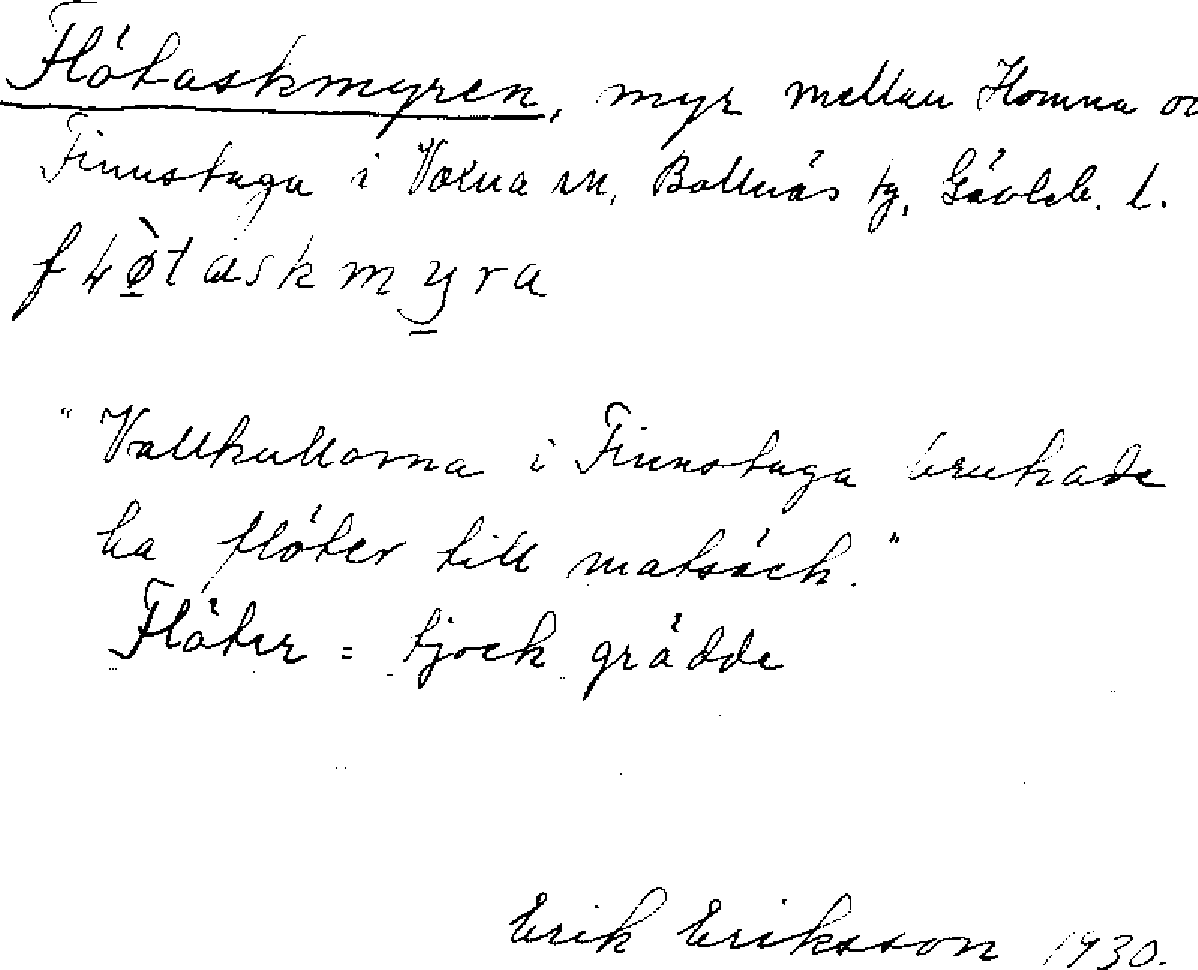 Flötaskmyren, myr mellan Homna oc
Finnstuga i Voxna sn, Bollnäs tg, Gävleb. l.
fLø̀taskmyra
"Vallkullorna i Finnstuga brukade
ha flöter till matsäck."
Flöter = tjock grädde
Erik Eriksson 1930.